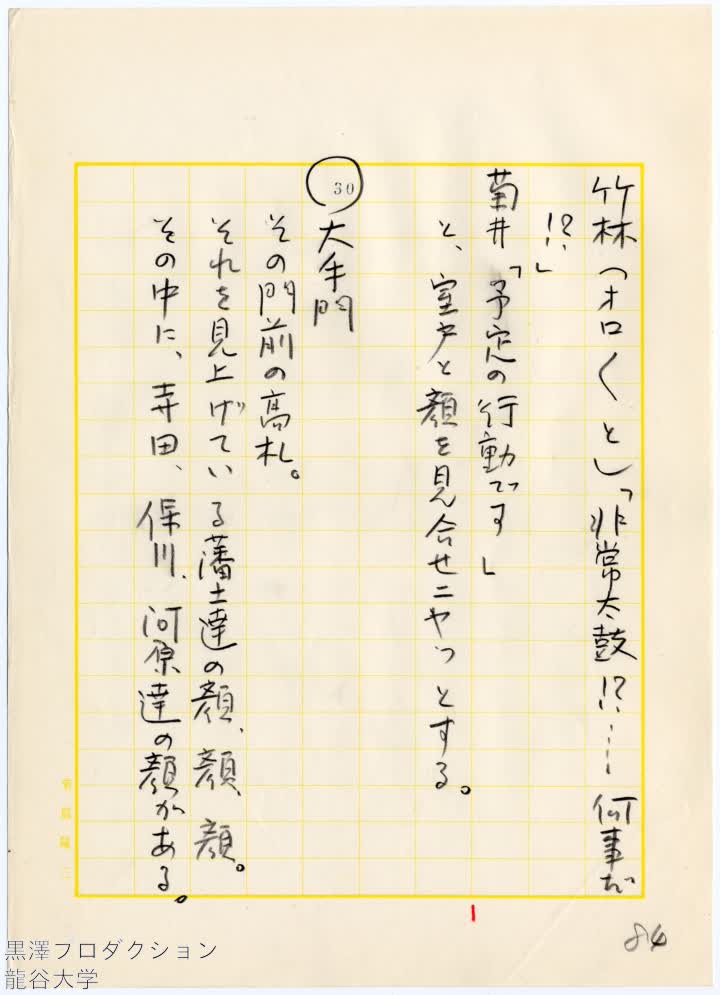 竹林（オロ〱とし「非常太鼓!?……何事だ
!?」
菊井「予定の行動です」
と、室戸と顔を見合せニヤッとする。
30
大手門
その門前の高札。
それを見上げている藩士達の顔、顔、顔。
その中に、寺田、保川、河原達の顔がある。
84
黒澤プロダクション
龍谷大学